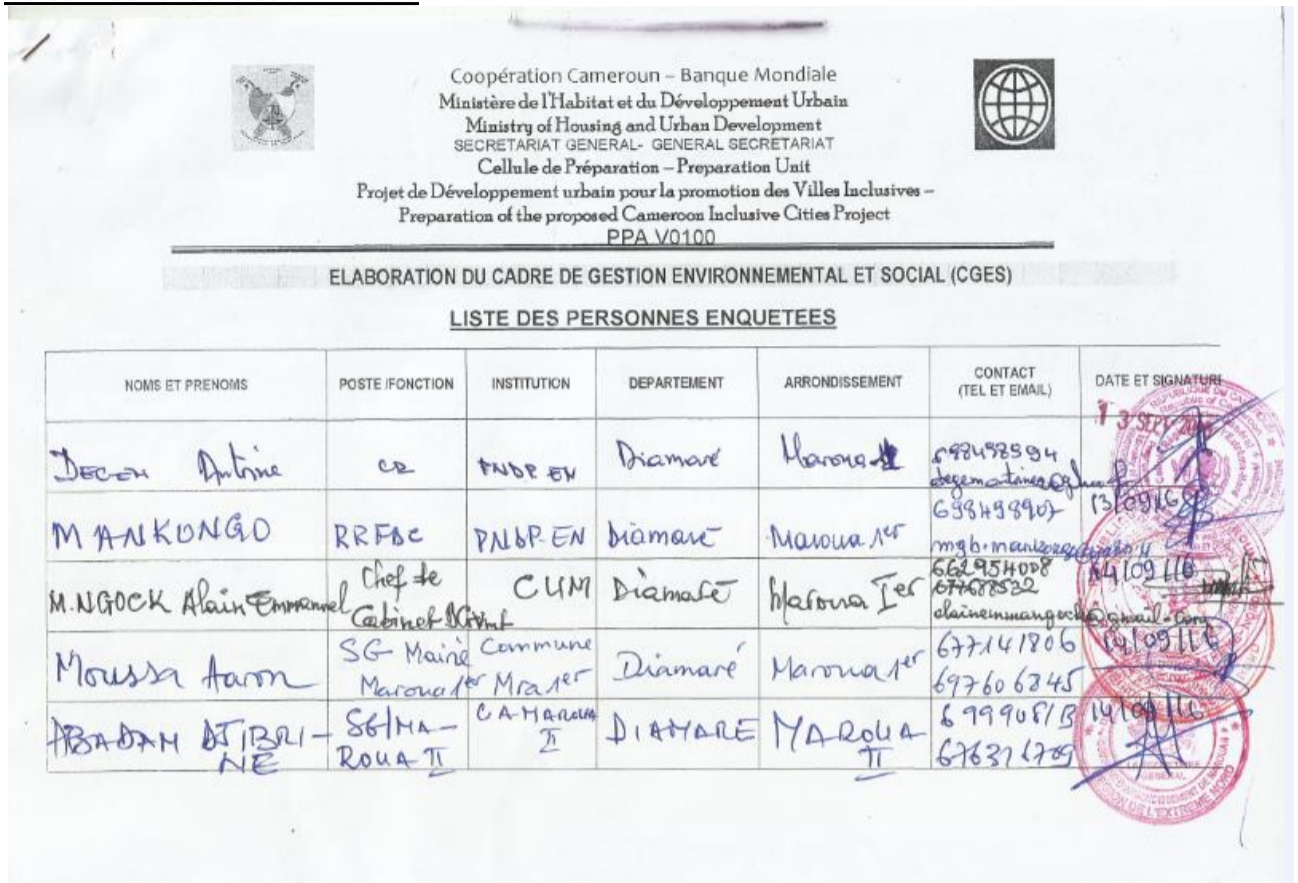 Coopération Cameroun – Banque Mondiale
Ministère de l'Habitat et du Développement Urbain
Ministry of Housing and Urban Development
SECRETARIAT GENERAL- GENERAL SECRETARIAT
Cellule de Préparation – Preparation Unit
Projet de Développement urbain pour la promotion des Villes Inclusives –
Preparation of the proposed Cameroon Inclusive Cities Project
PPA V0100
ELABORATION DU CADRE DE GESTION ENVIRONNEMENTAL ET SOCIAL (CGES)
LISTE DES PERSONNES ENQUETEES
NOMS ET PRENOMS POSTE /FONCTION INSTITUTION DEPARTEMENT ARRONDISSEMENT CONTACT (TEL ET EMAIL) DATE ET SIGNATURE
Antoine PNDP EN Diamaré Maroua
13 SEPT
MANKONGO PNDP-EN Diamaré Maroua 1er 698498907 13/09/16
M.NGOCK Alain Emmanuel Chef de Cabinet CUM Diamaré Maroua Ier 677688532 14/09/16
Moussa Aaron SG Mairie Maroua 1er Commune Mra 1er Diamaré Maroua 1er 677141806 697606845 14/09/16
ABADAM DJIBRINE SG/MAROUA II CA-MAROUA II DIAMARE MAROUA II 14/09/16